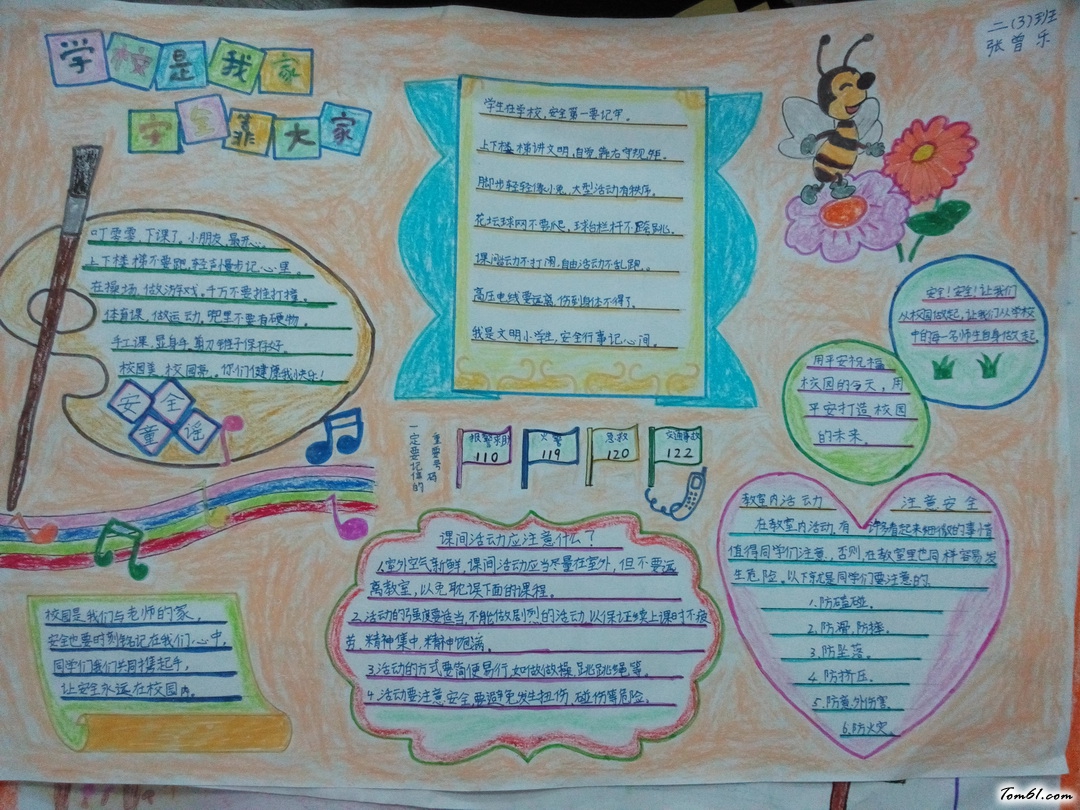 学校是我家
安全靠大家
二(3)班
张曾乐
叮零零,下课了,小朋友,最开心。
上下楼梯不要跑,轻声慢步记心里。
在操场,做游戏,千万不要推打撞。
体育课,做运动,兜里不要有硬物。
手工课,显身手,剪刀锥子保存好。
校园美,校园亭,你们健康我快乐!
安全
童谣
学生在学校,安全第一要记牢。
上下楼梯讲文明,自觉靠右守规矩。
脚步轻轻像小兔,大型活动有秩序。
花坛球网不要爬,球台栏杆不跨跳。
课间活动不打闹,自由活动不乱跑。
高压电线要远离,伤到身体不得了。
我是文明小学生,安全行事记心间。
安全!安全!让我们
从校园做起,让我们从学校
中的每一名师生自身做起
用平安祝福
校园的今天,用
平安打造校园
的未来。
重要号码
一定要记住的
报警求助
110
火警
119
急救
120
交通事故
122
校园是我们与老师的家,
安全也要时刻铭记在我们心中,
同学们我们共同携起手,
让安全永远在校园内。
课间活动应注意什么?
1.室外空气新鲜,课间活动应当尽量在室外,但不要远
离教室,以免耽误下面的课程。
2.活动的强度要适当,不能做剧烈的活动,以保证继续上课时不疲
劳,精神集中,精神饱满。
3.活动的方式要简便易行,如做做操,跳跳绳等。
4.活动要注意安全,要避免发生扭伤,碰伤等危险。
教室内活动 注意安全
在教室内活动,有许多看起来细微的事情
值得同学们注意,否则,在教室里也同样容易发
生危险。以下就是同学们要注意的
1.防磕碰。
2.防滑,防摔。
3.防坠落。
4.防挤压。
5.防意外伤害
6.防火灾。
Tom61.com